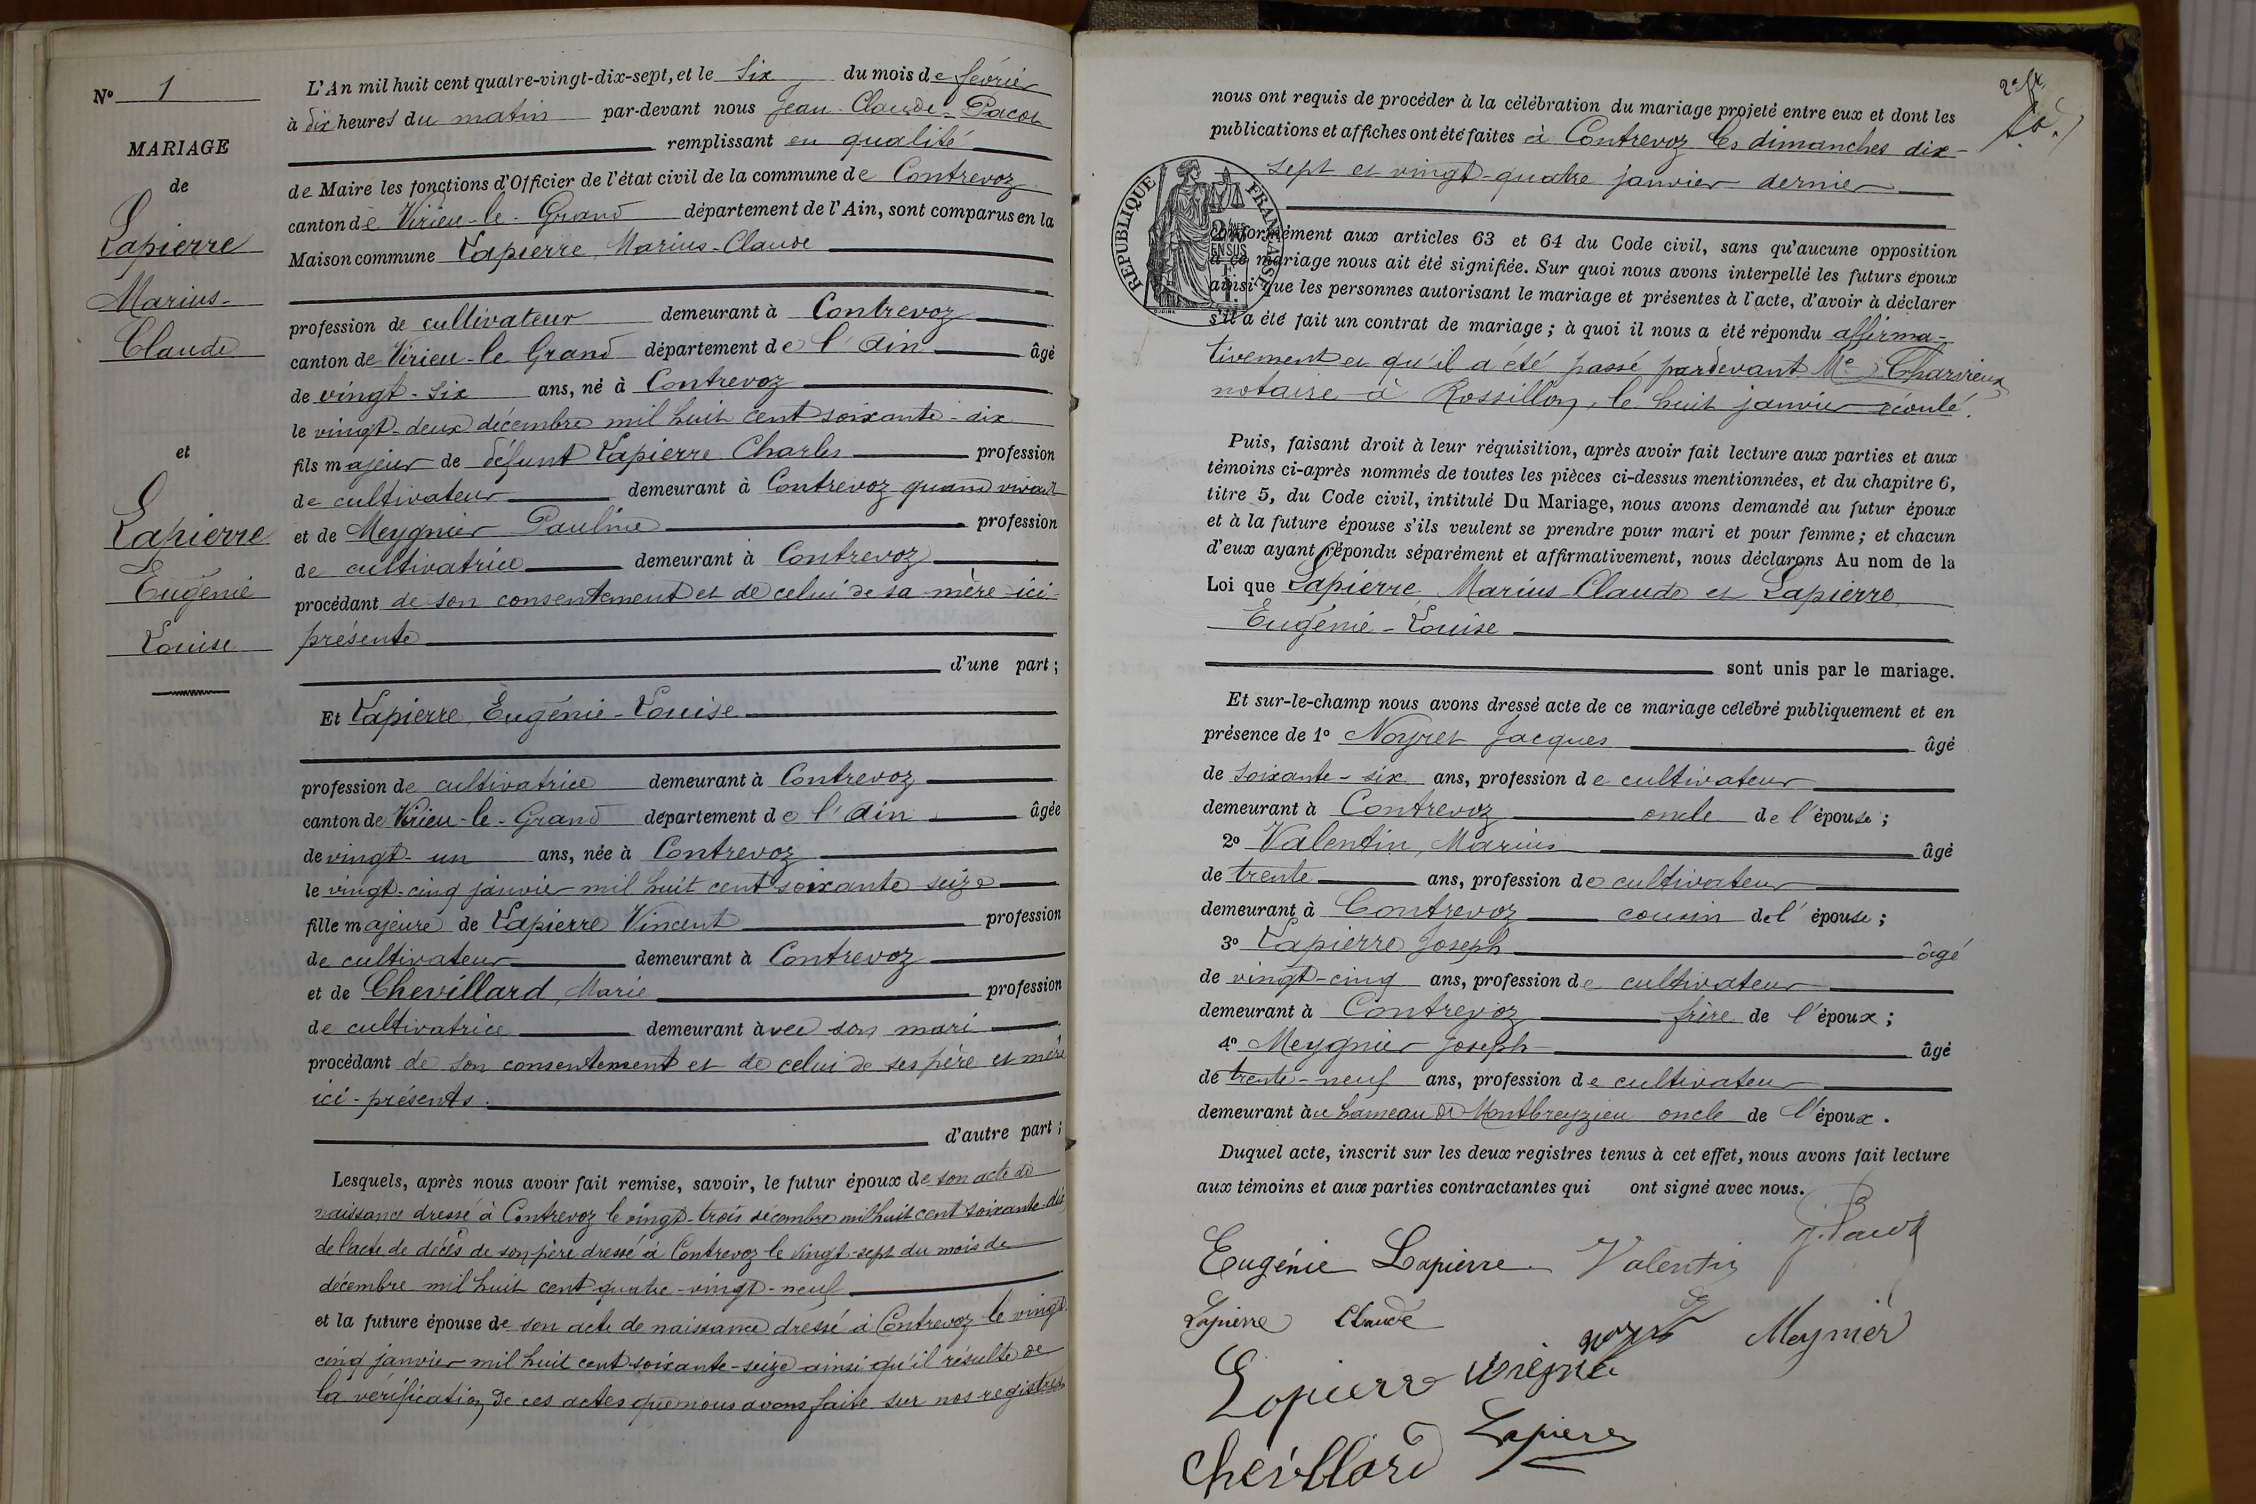 N° 1
MARIAGE
de
Lapierre
Marius-
Claude
et
Lapierre
Eugénie
Louise
L'An mil huit cent quatre-vingt-dix-sept, et le six du mois de février
à dix heures du matin par-devant nous Jean-Claude Pacot
remplissant en qualité
de Maire les fonctions d'Officier de l'état civil de la commune de Contrevoz
canton de Virieu-le-Grand département de l'Ain, sont comparus en la
Maison commune Lapierre, Marius-Claude
profession de cultivateur demeurant à Contrevoz
canton de Virieu-le Grand département de l'Ain âgé
de vingt-six ans, né à Contrevoz
le vingt-deux décembre mil huit cent soixante-dix
fils majeur de défunt Lapierre Charles profession
de cultivateur demeurant à Contrevoz quand vivait
et de Meygnier Pauline profession
de cultivatrice demeurant à Contrevoz
procédant de son consentement et de celui de sa mère ici-
présente
d'une part;
Et Lapierre, Eugénie-Louise
profession de cultivatrice demeurant à Contrevoz
canton de Virieu-le-Grand département de l'Ain âgée
de vingt-un ans, née à Contrevoz
le vingt-cinq janvier mil huit cent soixante seize
fille majeure de Lapierre Vincent profession
de cultivateur demeurant à Contrevoz
et de Chevillard, Marie profession
de cultivatrice demeurant avec son mari
procédant de son consentement et de celui de ses père et mère
ici-présents.
d'autre part;
Lesquels, après nous avoir fait remise, savoir, le futur époux de son acte de
naissance dressé à Contrevoz le vingt-trois décembre mil huit cent soixante-dix,
de l'acte de décès de son père dressé à Contrevoz le vingt-sept du mois de
décembre mil huit cent quatre-vingt-neuf
et la future épouse de son acte de naissance dressé à Contrevoz le vingt
cinq janvier mil huit cent soixante-seize ainsi qu'il résulte de
la vérification de ces actes que nous avons faite sur nos registres
nous ont requis de procéder à la célébration du mariage projeté entre eux et dont les
publications et affiches ont été faites à Contrevoz les dimanches dix-
sept et vingt-quatre janvier dernier
REPUBLIQUE FRANÇAISE
Conformément aux articles 63 et 64 du Code civil, sans qu'aucune opposition
à ce mariage nous ait été signifiée. Sur quoi nous avons interpellé les futurs époux
ainsi que les personnes autorisant le mariage et présentes à l'acte, d'avoir à déclarer
s'il a été fait un contrat de mariage; à quoi il nous a été répondu affirma-
tivement et qu'il a été passé pardevant Me Charvieux
notaire à Rossillon, le huit janvier écoulé.
Puis, faisant droit à leur réquisition, après avoir fait lecture aux parties et aux
témoins ci-après nommés de toutes les pièces ci-dessus mentionnées, et du chapitre 6,
titre 5, du Code civil, intitulé Du Mariage, nous avons demandé au futur époux
et à la future épouse s'ils veulent se prendre pour mari et pour femme; et chacun
d'eux ayant répondu séparément et affirmativement, nous déclarons Au nom de la
Loi que Lapierre, Marius-Claude et Lapierre
Eugénie-Louise
sont unis par le mariage.
Et sur-le-champ nous avons dressé acte de ce mariage célébré publiquement et en
présence de 1° Noyret Jacques âgé
de soixante-six ans, profession de cultivateur
demeurant à Contrevoz oncle de l'épouse;
2° Valentin, Marius âgé
de trente ans, profession de cultivateur
demeurant à Contrevoz cousin de l'épouse;
3° Lapierre Joseph âgé
de vingt-cinq ans, profession de cultivateur
demeurant à Contrevoz frère de l'époux;
4° Meygnier Joseph âgé
de trente-neuf ans, profession de cultivateur
demeurant au hameau de Montbreyzieu oncle de l'époux.
Duquel acte, inscrit sur les deux registres tenus à cet effet, nous avons fait lecture
aux témoins et aux parties contractantes qui ont signé avec nous.
Eugénie Lapierre Valentin J. Pacot
Lapierre Claude
Meynier
Lapierre
Chevillard Lapierre